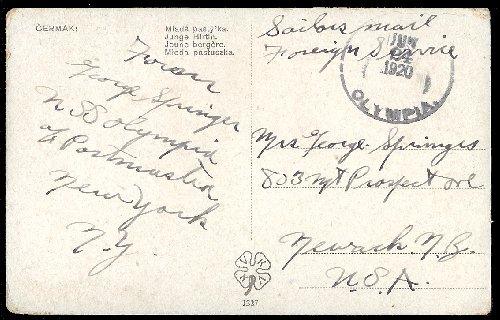 ČERMÁK:
Mladá pastýřka.
Junge Hirtin.
Jeune bergère.
Młoda pastuszka.
From
George Springer
U S S Olympia
c/o Postmaster
New York
N.Y.
Sailors mail
Foreign Service
JUN
1920
OLYMPIA.
Mrs George Springer
803 Mt Prospect Ave
Newark. N. J.
U.S.A.
V K K V
1337